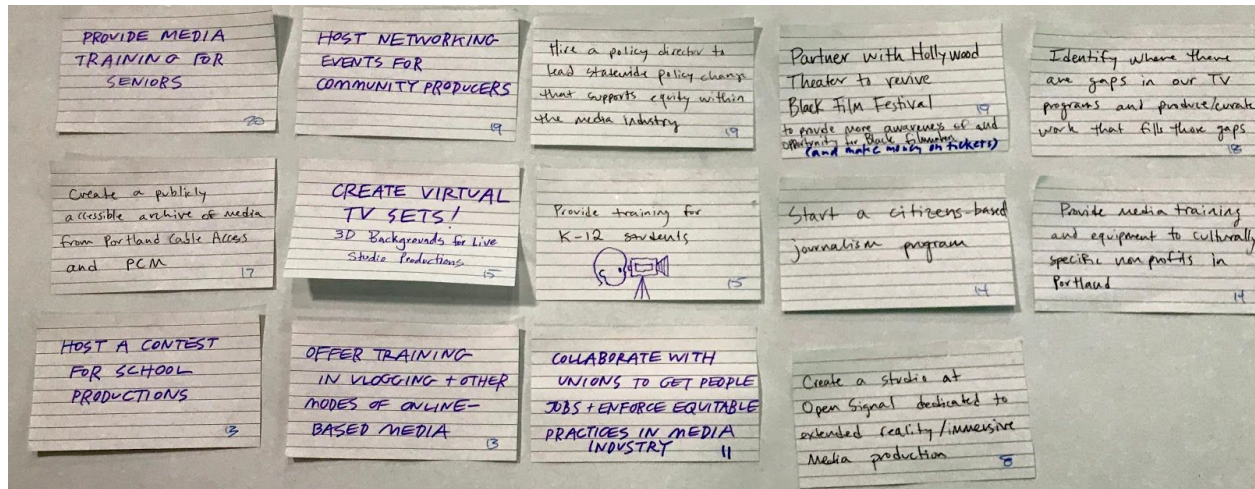 PROVIDE MEDIA
TRAINING FOR
SENIORS
20
HOST NETWORKING
EVENTS FOR
COMMUNITY PRODUCERS
19
Hire a policy director to
lead statewide policy change
that supports equity within
the media industry
19
Partner with Hollywood
Theater to revive
Black Film Festival
19
to provide more awareness of and
opportunity for Black filmmakers
(and make money on tickets)
Identify where there
are gaps in our TV
programs and produce/curate
work that fills those gaps
18
Create a publicly
accessible archive of media
from Portland Cable Access
and PCM
17
CREATE VIRTUAL
TV SETS!
3D Backgrounds for Live
Studio Productions
15
Provide training for
K-12 students
15
Start a citizens-based
journalism program
14
Provide media training
and equipment to culturally
specific nonprofits in
Portland
14
HOST A CONTEST
FOR SCHOOL
PRODUCTIONS
13
OFFER TRAINING
IN VLOGGING + OTHER
MODES OF ONLINE-
BASED MEDIA
13
COLLABORATE WITH
UNIONS TO GET PEOPLE
JOBS + ENFORCE EQUITABLE
PRACTICES IN MEDIA
INDUSTRY
11
Create a studio at
Open Signal dedicated to
extended reality/immersive
Media production
8